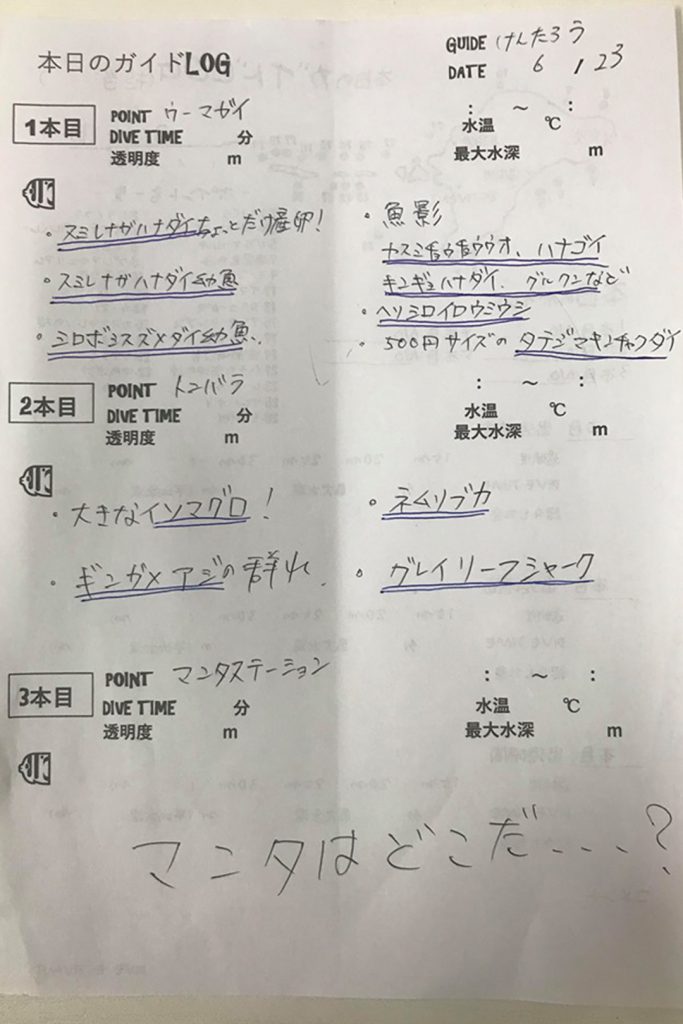 本日のガイドLOG
GUIDE けんたろう
DATE 6 / 23
1本目
POINT ウーマガイ
DIVE TIME 分
透明度 m
: ～ :
水温 ℃
最大水深 m
・スミレナガハナダイちょっとだけ産卵!
・スミレナガハナダイ幼魚
・シロボシスズメダイ幼魚..
・魚影
カスミチョウチョウウオ、ハナゴイ
キンギョハナダイ、グルクンなど
・ヘリシロイロウミウシ
・500円サイズのタテジマキンチャクダイ
2本目
POINT トンバラ
DIVE TIME 分
透明度 m
: ～ :
水温 ℃
最大水深 m
・大きなイソマグロ!
・ギンガメアジの群れ.
・ネムリブカ
・グレイリーフシャーク
3本目
POINT マンタステーション
DIVE TIME 分
透明度 m
: ～ :
水温 ℃
最大水深 m
マンタはどこだ...?